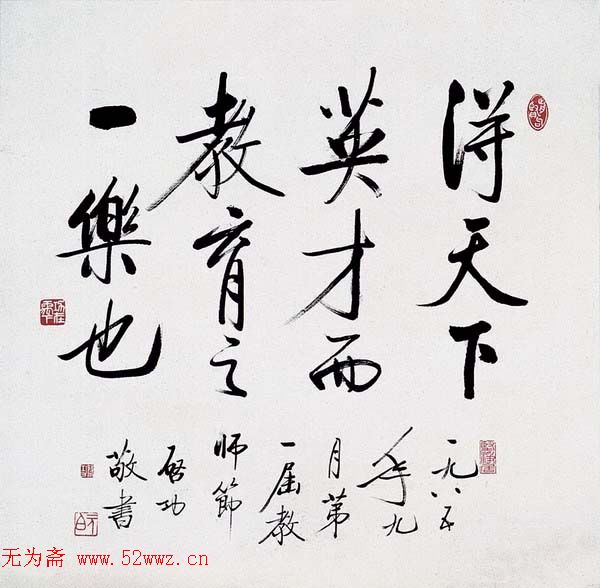 得天下
英才而
教育之
一樂也
一九八五
年九
月第
一届教
师節
啓功
敬書
无为斋 www.52wwz.cn